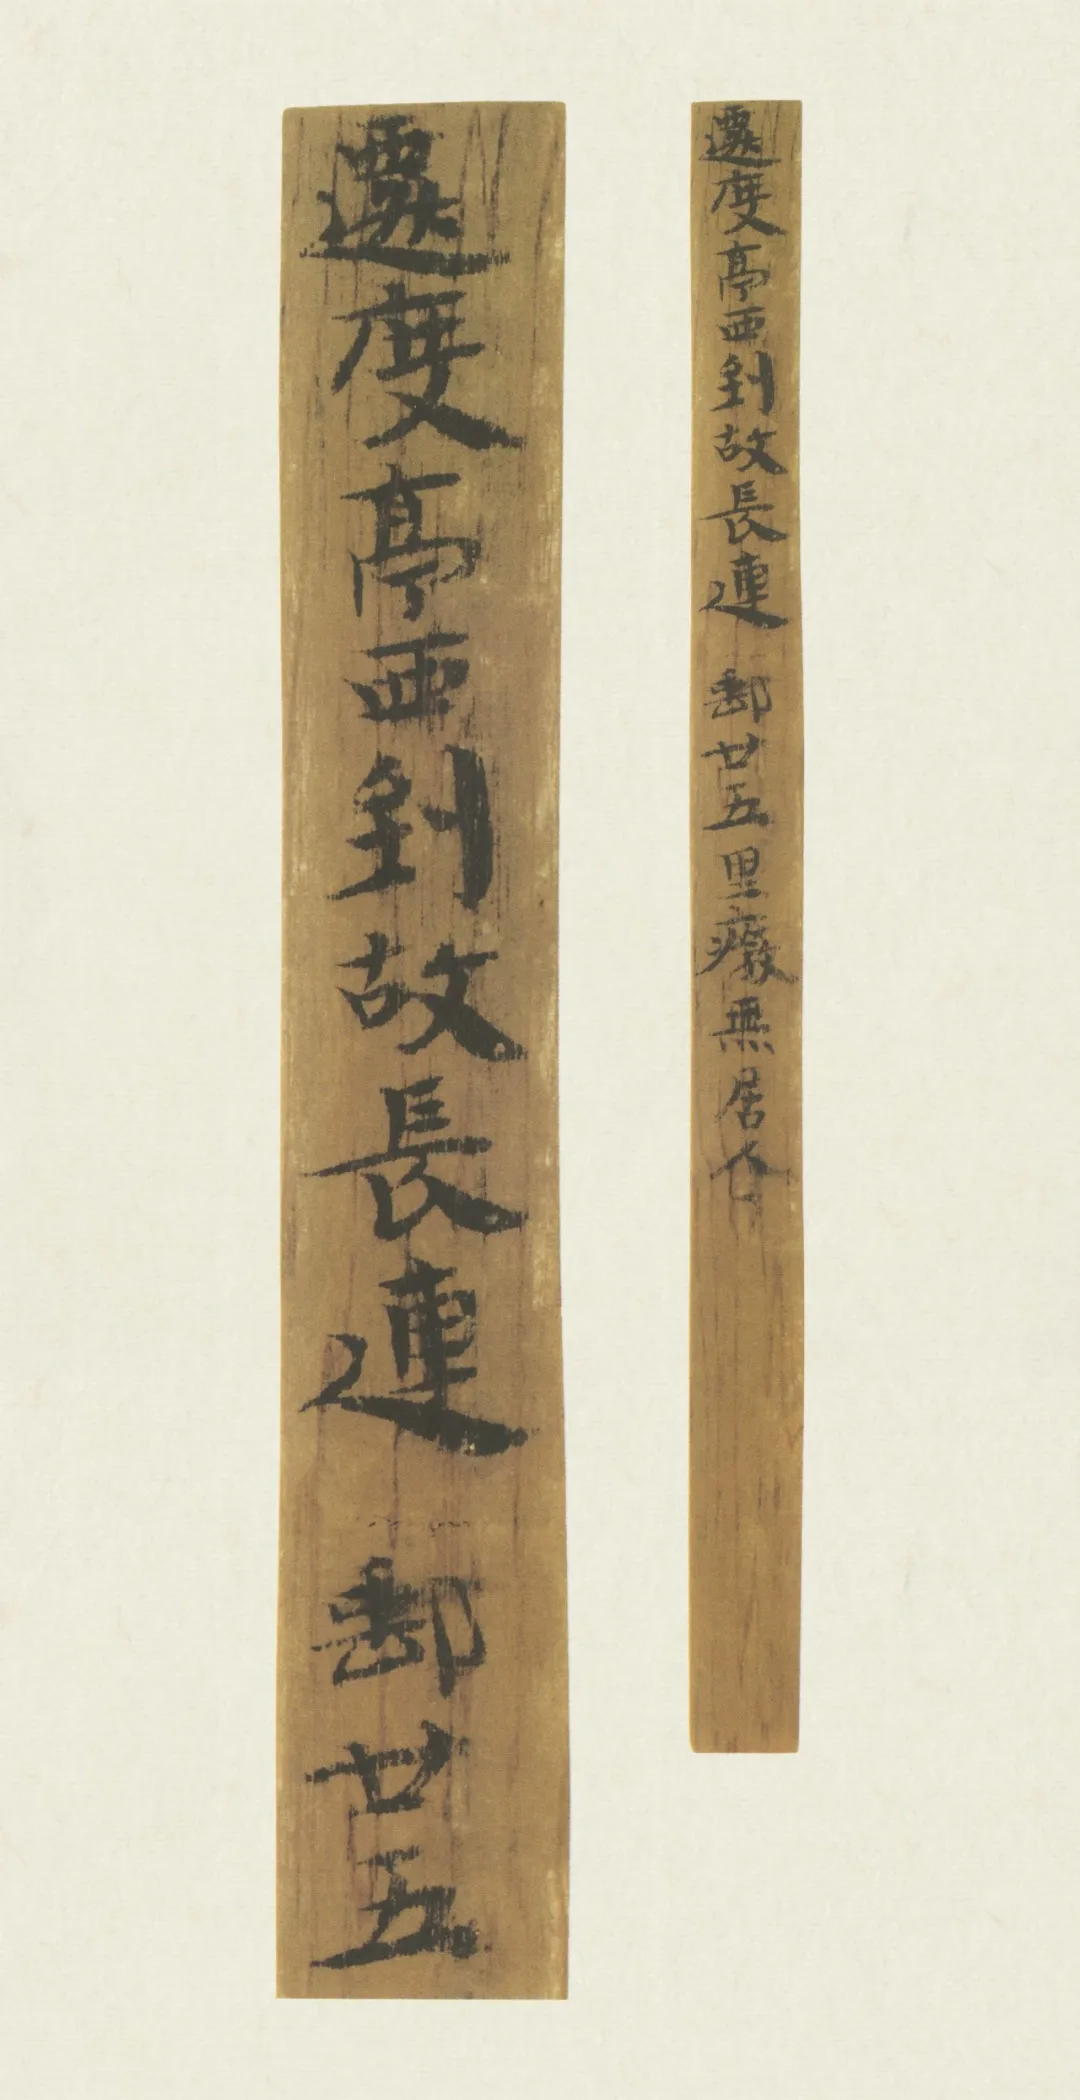 遷度亭西到故長連郵廿五里癈無居人
遷度亭西到故長連郵廿五